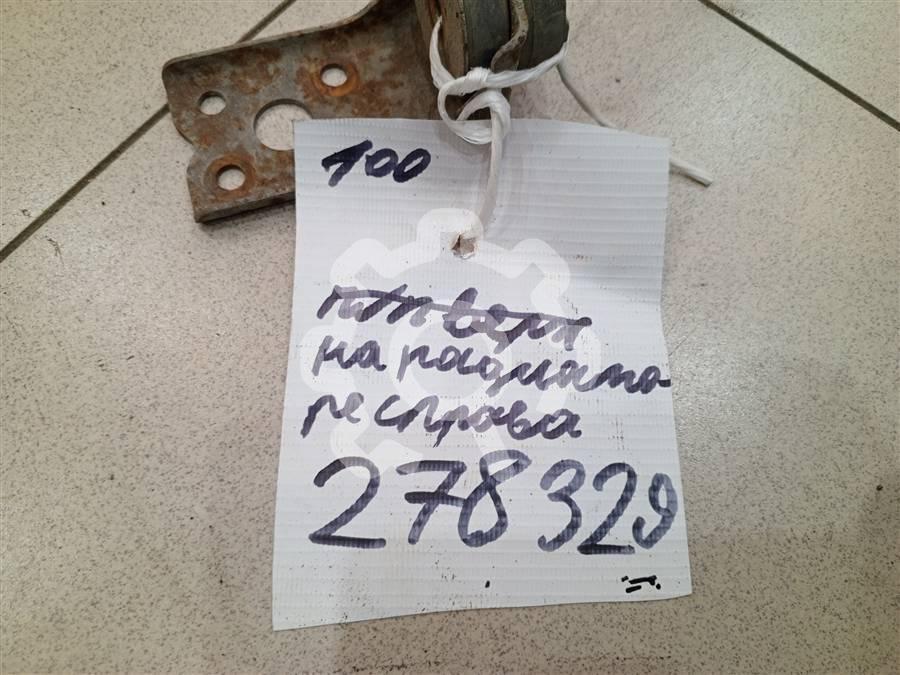 100
на радиато-
ре справа
278329